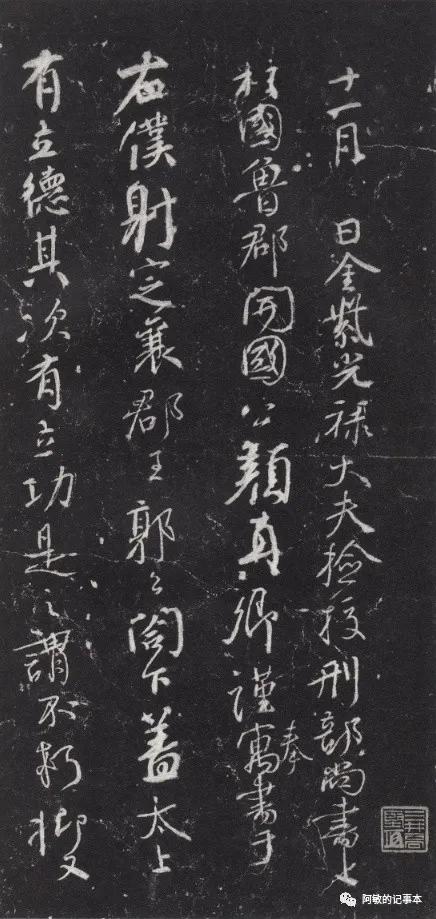 十一月 日金紫光禄大夫檢校刑部尚書上
柱國魯郡開國公顏真卿謹奉寓書于
右僕射定襄郡王郭公閤下蓋太上
有立德其次有立功是之謂不朽抑又
阿敏的记事本